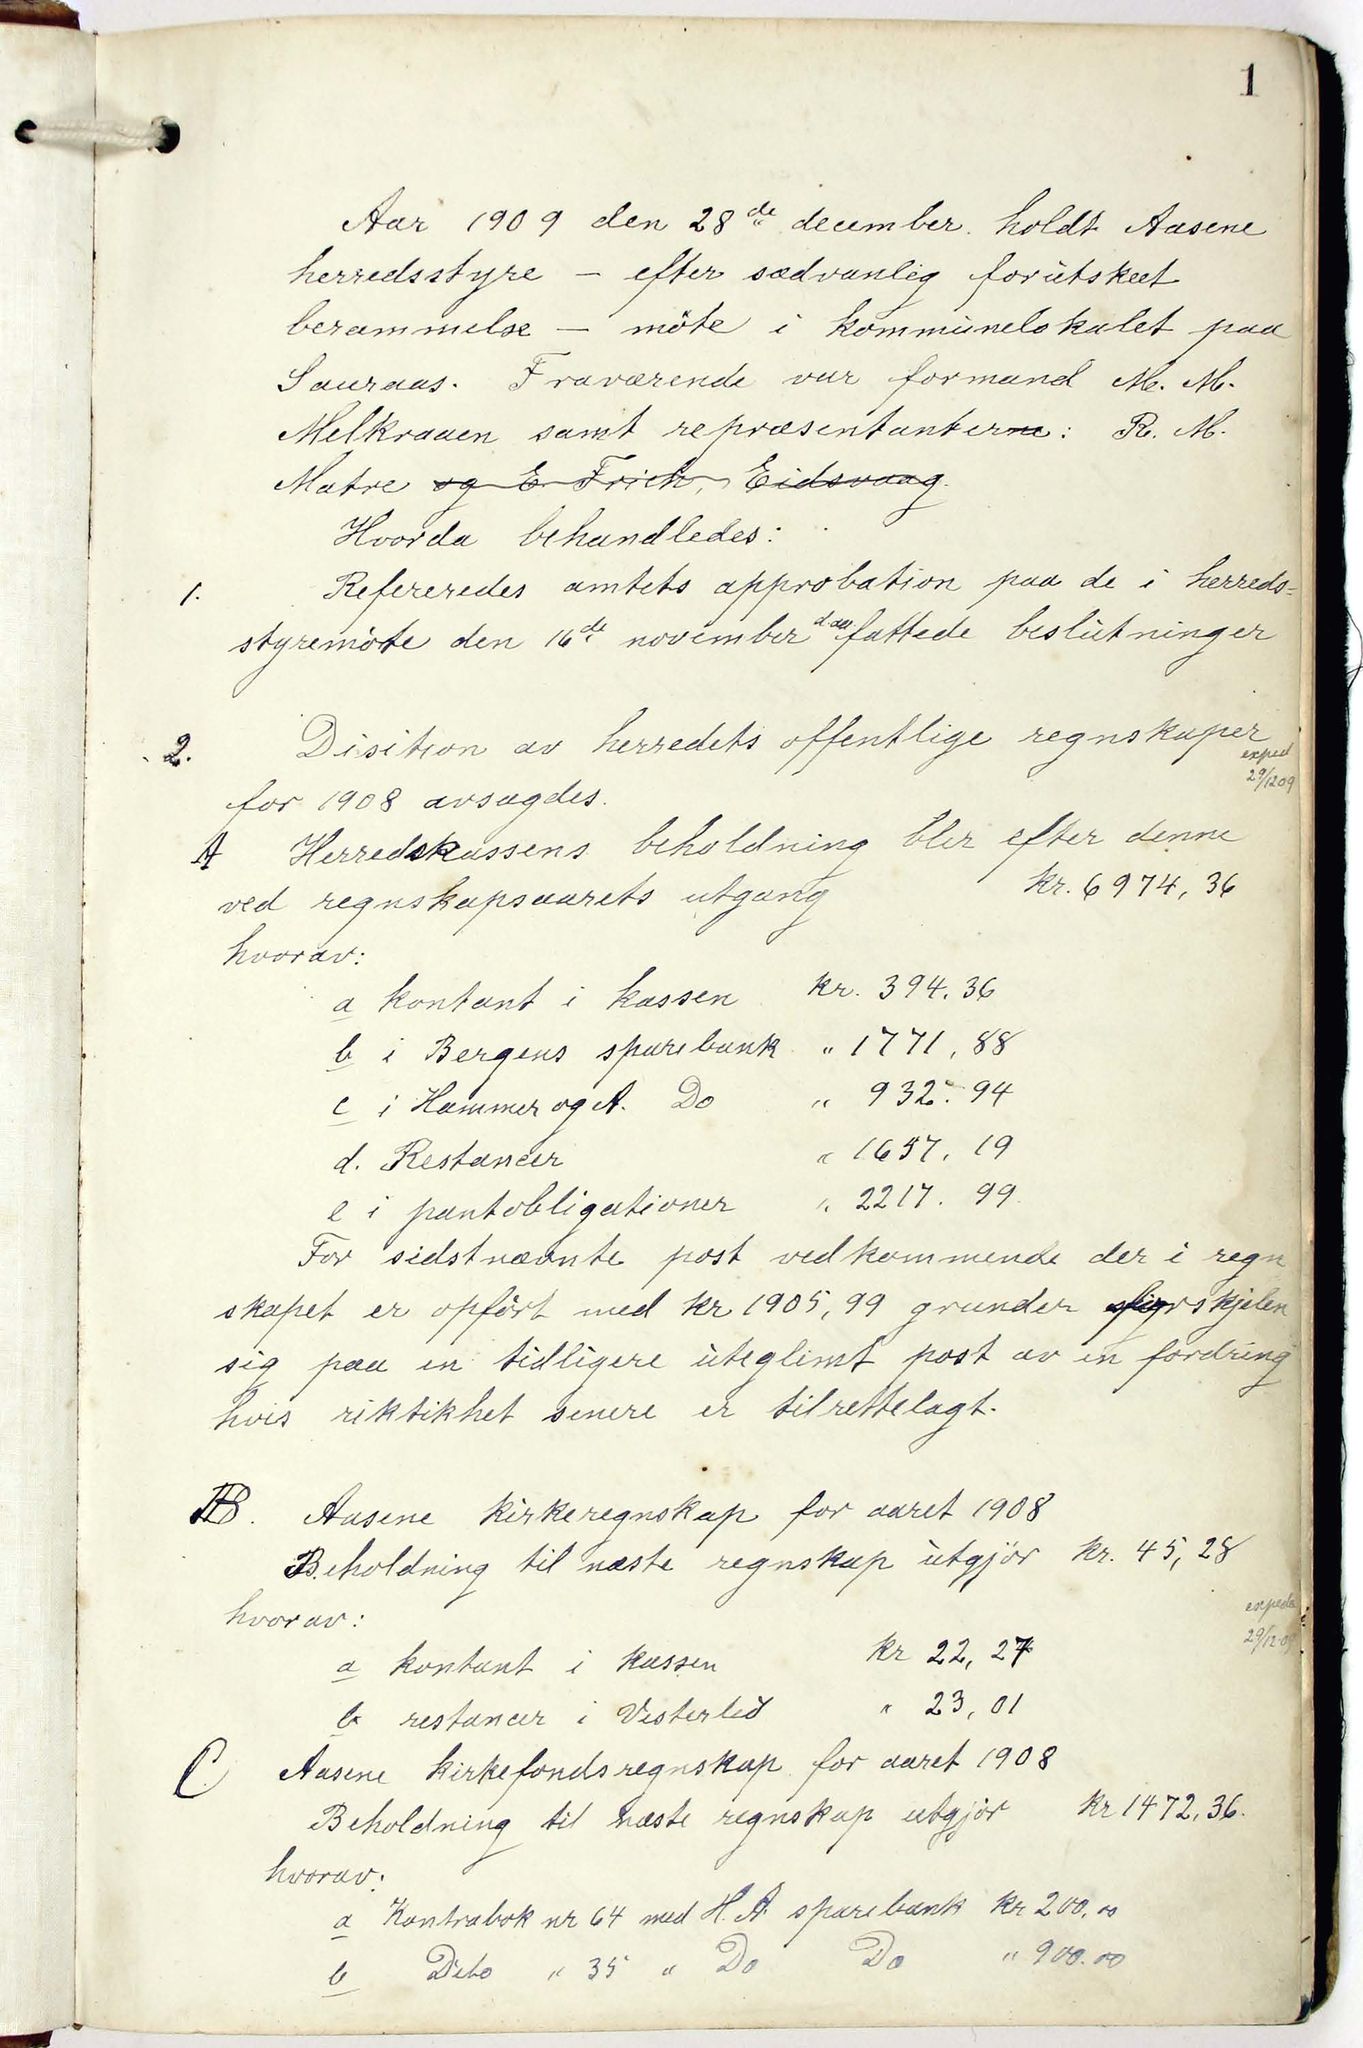 1
Aar 1909 den 28de december holdt Aasene
herredsstyre – efter sædvanlig forutskeet
berammelse – möte i kommunelokalet paa
Sauraas. Fraværende var formand M. M.
Melkraaen samt repræsentanterne: R. M.
Matre og E Frich, Eidsvaag.
Hvorda behandledes:
1. Refereredes amtets approbation paa de i herreds=
styremöte den 16de november d.aa. fattede beslutninger
2. Disition av herredets offentlige regnskaper
exped
29/12 09
for 1908 avsagdes.
A Herredskassens beholdning blir efter denne
ved regnskapsaarets utgang kr. 6974,36
hvorav:
a kontant i kassen kr. 394.36
b i Bergens sparebank " 1771,88
c i Hammer og A. Do " 932.94
d. Restancer " 1657.19
e i pantobligationer " 2217.99
For sidstnævnte post vedkommende der i regn
skapet er opfört med kr 1905,99 grunder forskjelen
sig paa en tidligere uteglemt post av en fordring
hvis riktikhet senere er tilrettelagt.
B. Aasene kirkeregnskap for aaret 1908
Beholdning til næste regnskap utgjör kr. 45,28
hvorav:
exped
29/12 09
a kontant i kassen kr 22,27
b restancer i Vesterled " 23,01
C. Aasene kirkefondsregnskap for aaret 1908
Beholdning til næste regnskap utgjör kr 1472,36.
hvorav:
a Kontrabok nr 64 med H. A. sparebank kr 200.00
b Deto " 35 " Do Do " 900.00